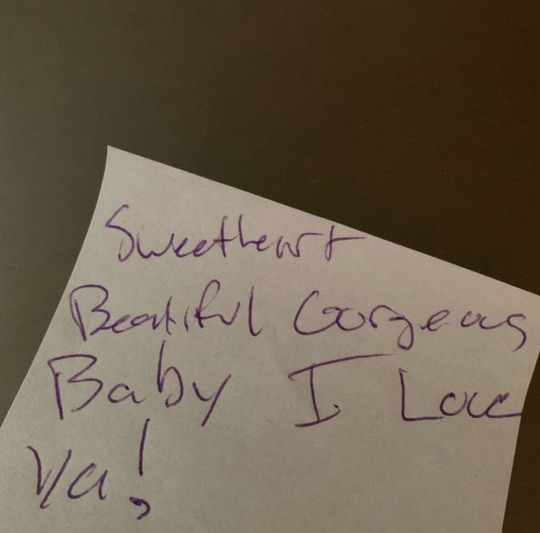 Sweetheart
Beautiful Gorgeous
Baby I Love
Ya!